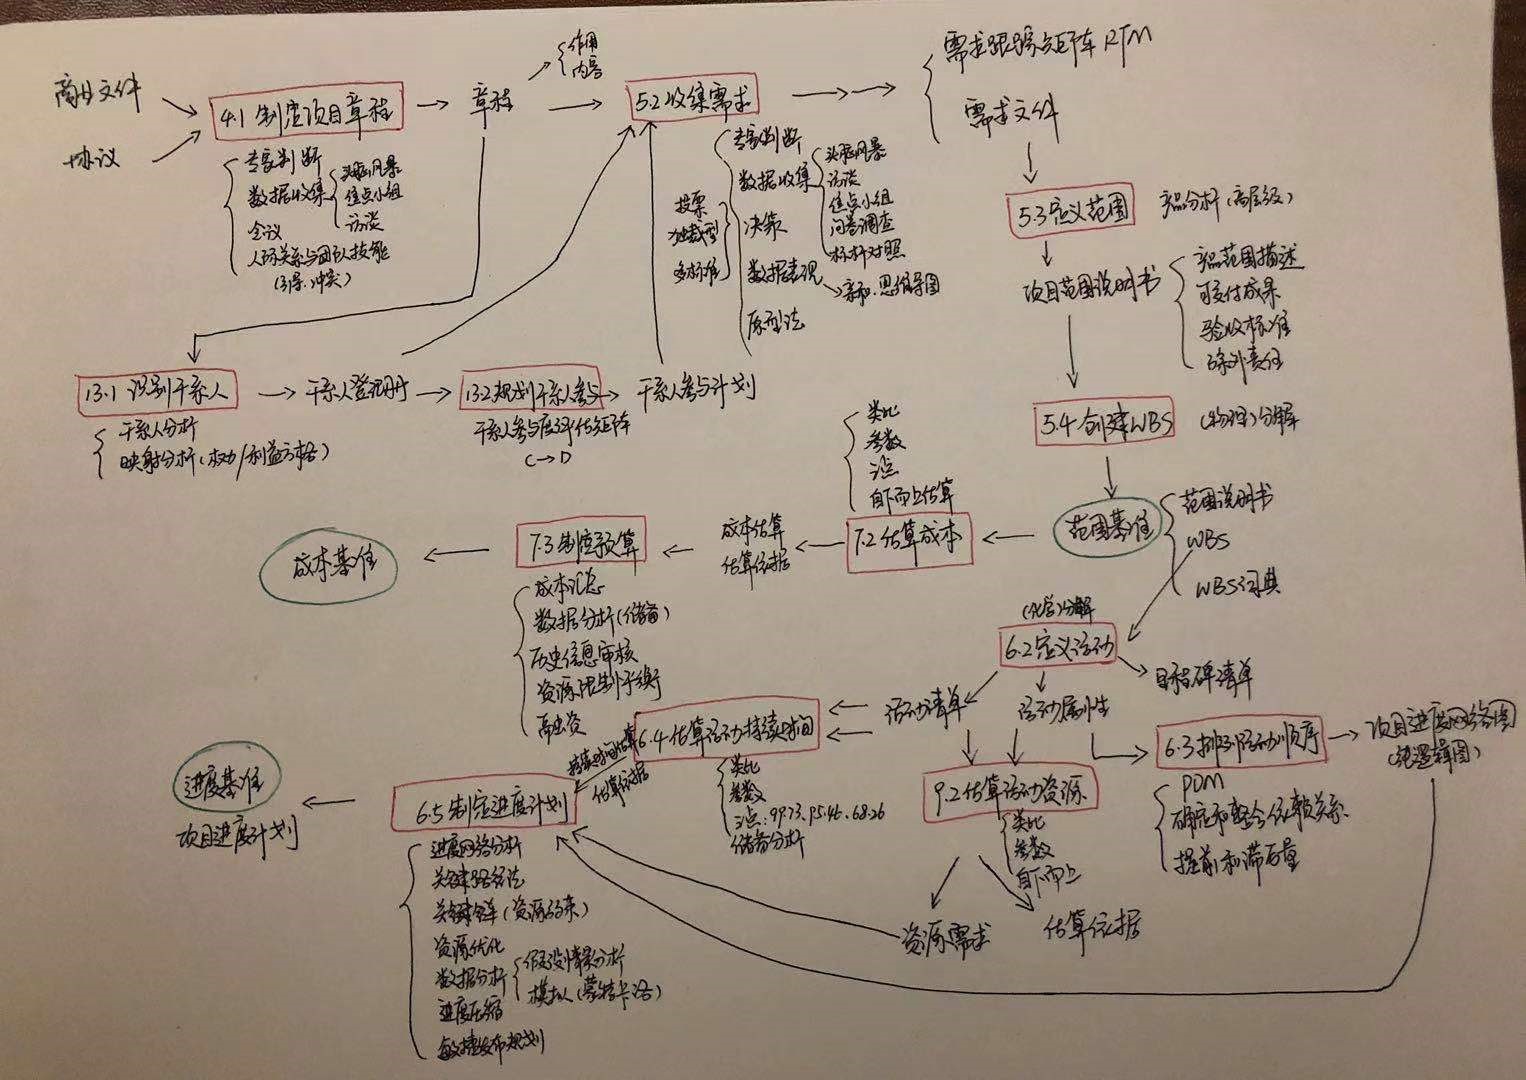 商业文件
协议
4.1 制定项目章程
专家判断
数据收集
头脑风暴
焦点小组
访谈
会议
人际关系与团队技能
(引导、冲突)
章程
作用
内容
5.2 收集需求
专家判断
数据收集
头脑风暴
访谈
焦点小组
问卷调查
标杆对照
决策
投票
独裁型
多标准
数据表现
亲和、思维导图
原型法
需求跟踪矩阵 RTM
需求文件
5.3 定义范围
产品分析(高层级)
项目范围说明书
产品范围描述
可交付成果
验收标准
除外责任
13.1 识别干系人
干系人分析
映射分析(权力/利益方格)
干系人登记册
13.2 规划干系人参与
干系人参与度评估矩阵
C→D
干系人参与计划
5.4 创建WBS
(物理)分解
范围基准
范围说明书
WBS
WBS词典
类比
参数
三点
自下而上估算
7.2 估算成本
成本估算
估算依据
7.3 制定预算
成本汇总
数据分析(储备)
历史信息审核
资源限制平衡
融资
成本基准
(化学)分解
6.2 定义活动
里程碑清单
活动清单
活动属性
6.3 排列活动顺序
PDM
确定和整合依赖关系
提前和滞后量
项目进度网络图
(纯逻辑图)
9.2 估算活动资源
类比
参数
自下而上
资源需求
估算依据
6.4 估算活动持续时间
类比
参数
三点:99.73、95.46、68.26
储备分析
持续时间估算
估算依据
6.5 制定进度计划
进度网络分析
关键路径法
关键链(资源约束)
资源优化
数据分析
假设情景分析
模拟(蒙特卡洛)
进度压缩
敏捷发布规划
进度基准
项目进度计划